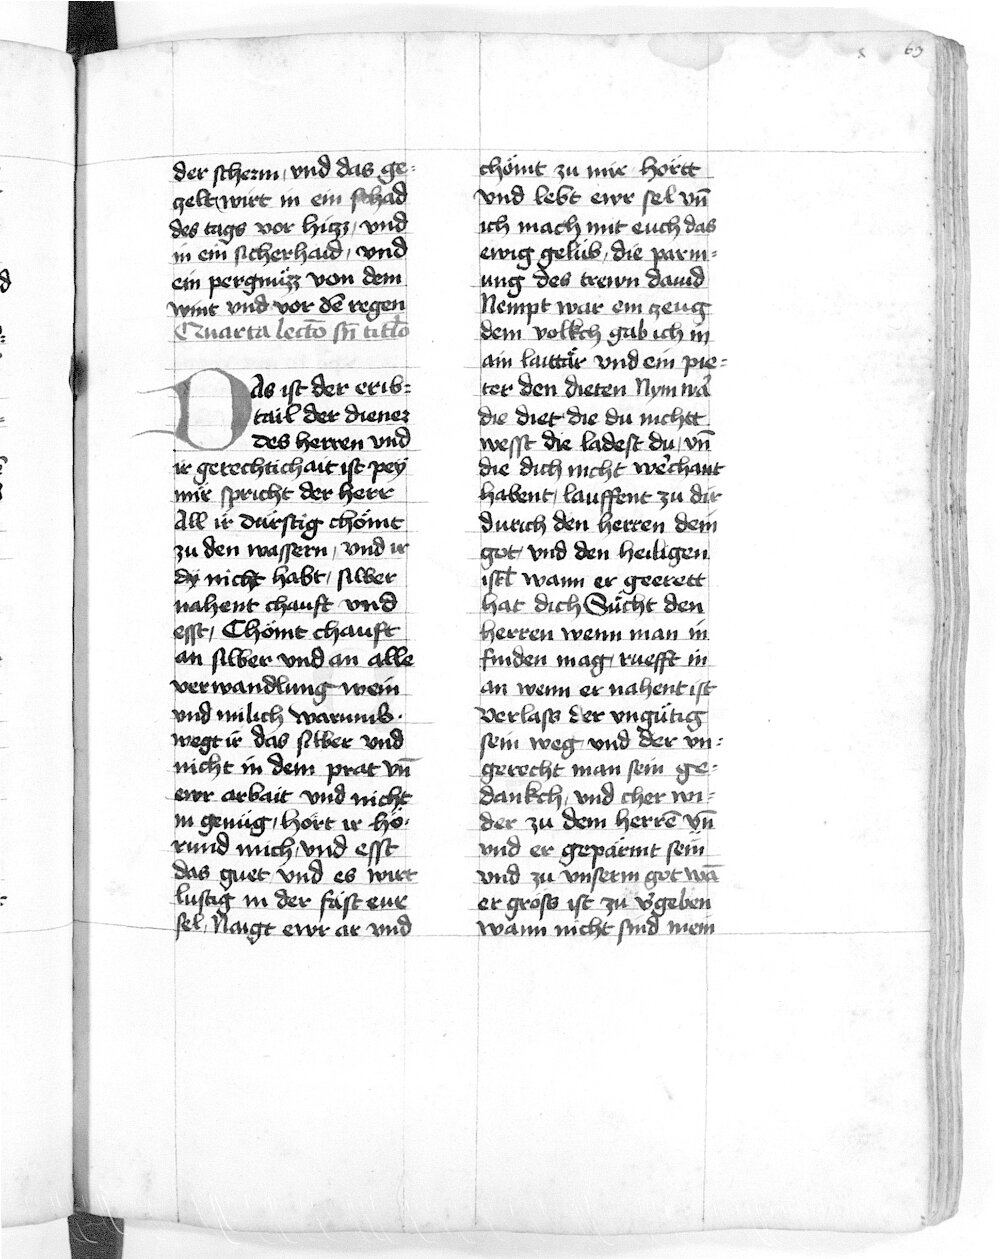 69
der scherm, vnd das ge-
gelt wirt in ein schad
des tags vor hitzz, vnd
in ein sicherhaid, vnd
ein pergnüzz von dem
wint vnd vor dē regen
Quarta lectō sn̄ titlo
DAs ist der erib-
tail der diener
des herren vnd
ir gerechtichait ist pey
mir spricht der herr
All ir dürstig chömt
zu den wassern, vnd ir
dy nicht habt, silber
nahent chauft vnd
esst, Chömt chauft
an silber vnd an alle
verwandlung wein
vnd milich warumb.
wegt ir das silber vnd
nicht in dem prat vn̄
ewr arbait vnd nicht
in genüg, hört ir hö-
rund mich, vnd esst
das guet vnd es wirt
lustig in der fäist eur
sel, Naigt ewr ar vnd
chömt zu mir hörtt
vnd lebt ewr sel vn̄
ich mach mit euch das
ewig gelüb, die parm-
ung des trewn dauid
Nempt war ein zeug
dem volkch gab ich in
ain laittär vnd ein pie-
ter den dieten Nym wa
die diet die du nichtt
wesst die ladest du, vn̄
die dich nicht wechant
habent, lauffent zu dir
durich den herren dein
got vnd den heiligen
isrl wann er geerett
hat dich Sücht den
herren wenn man in
finden mag, ruefft in
an wenn er nahent ist
Verlass der vngütig
sein weg vnd der vn-
gerecht man sein ge-
dankch, vnd cher wi-
der zu dem herrē vn̄
vnd er geparmt sein
vnd zu vnserm got wā
er gröss ist zu v'geben
wann nicht sind mein